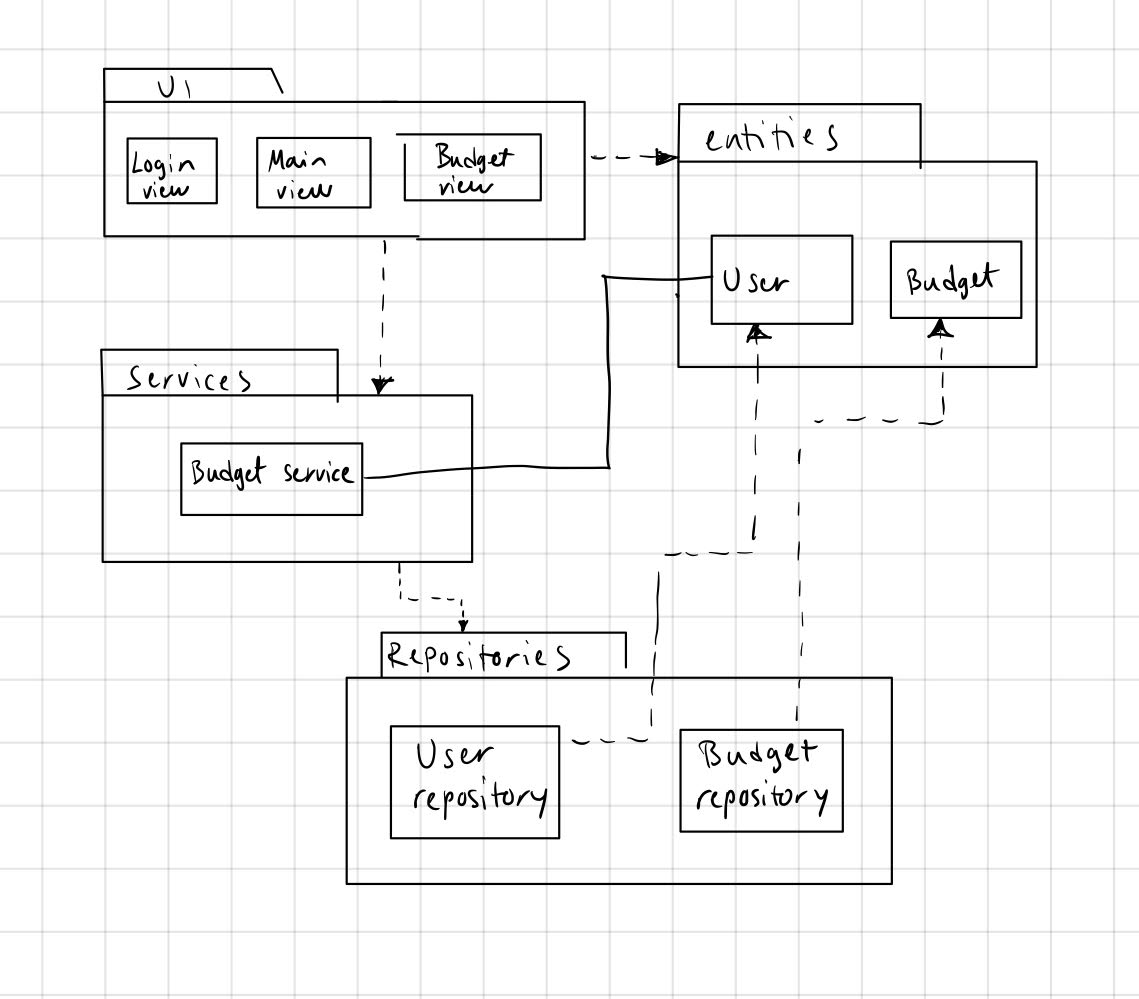 UI
Login
view
Main
view
Budget
view
entities
User
Budget
Services
Budget service
Repositories
User
repository
Budget
repository